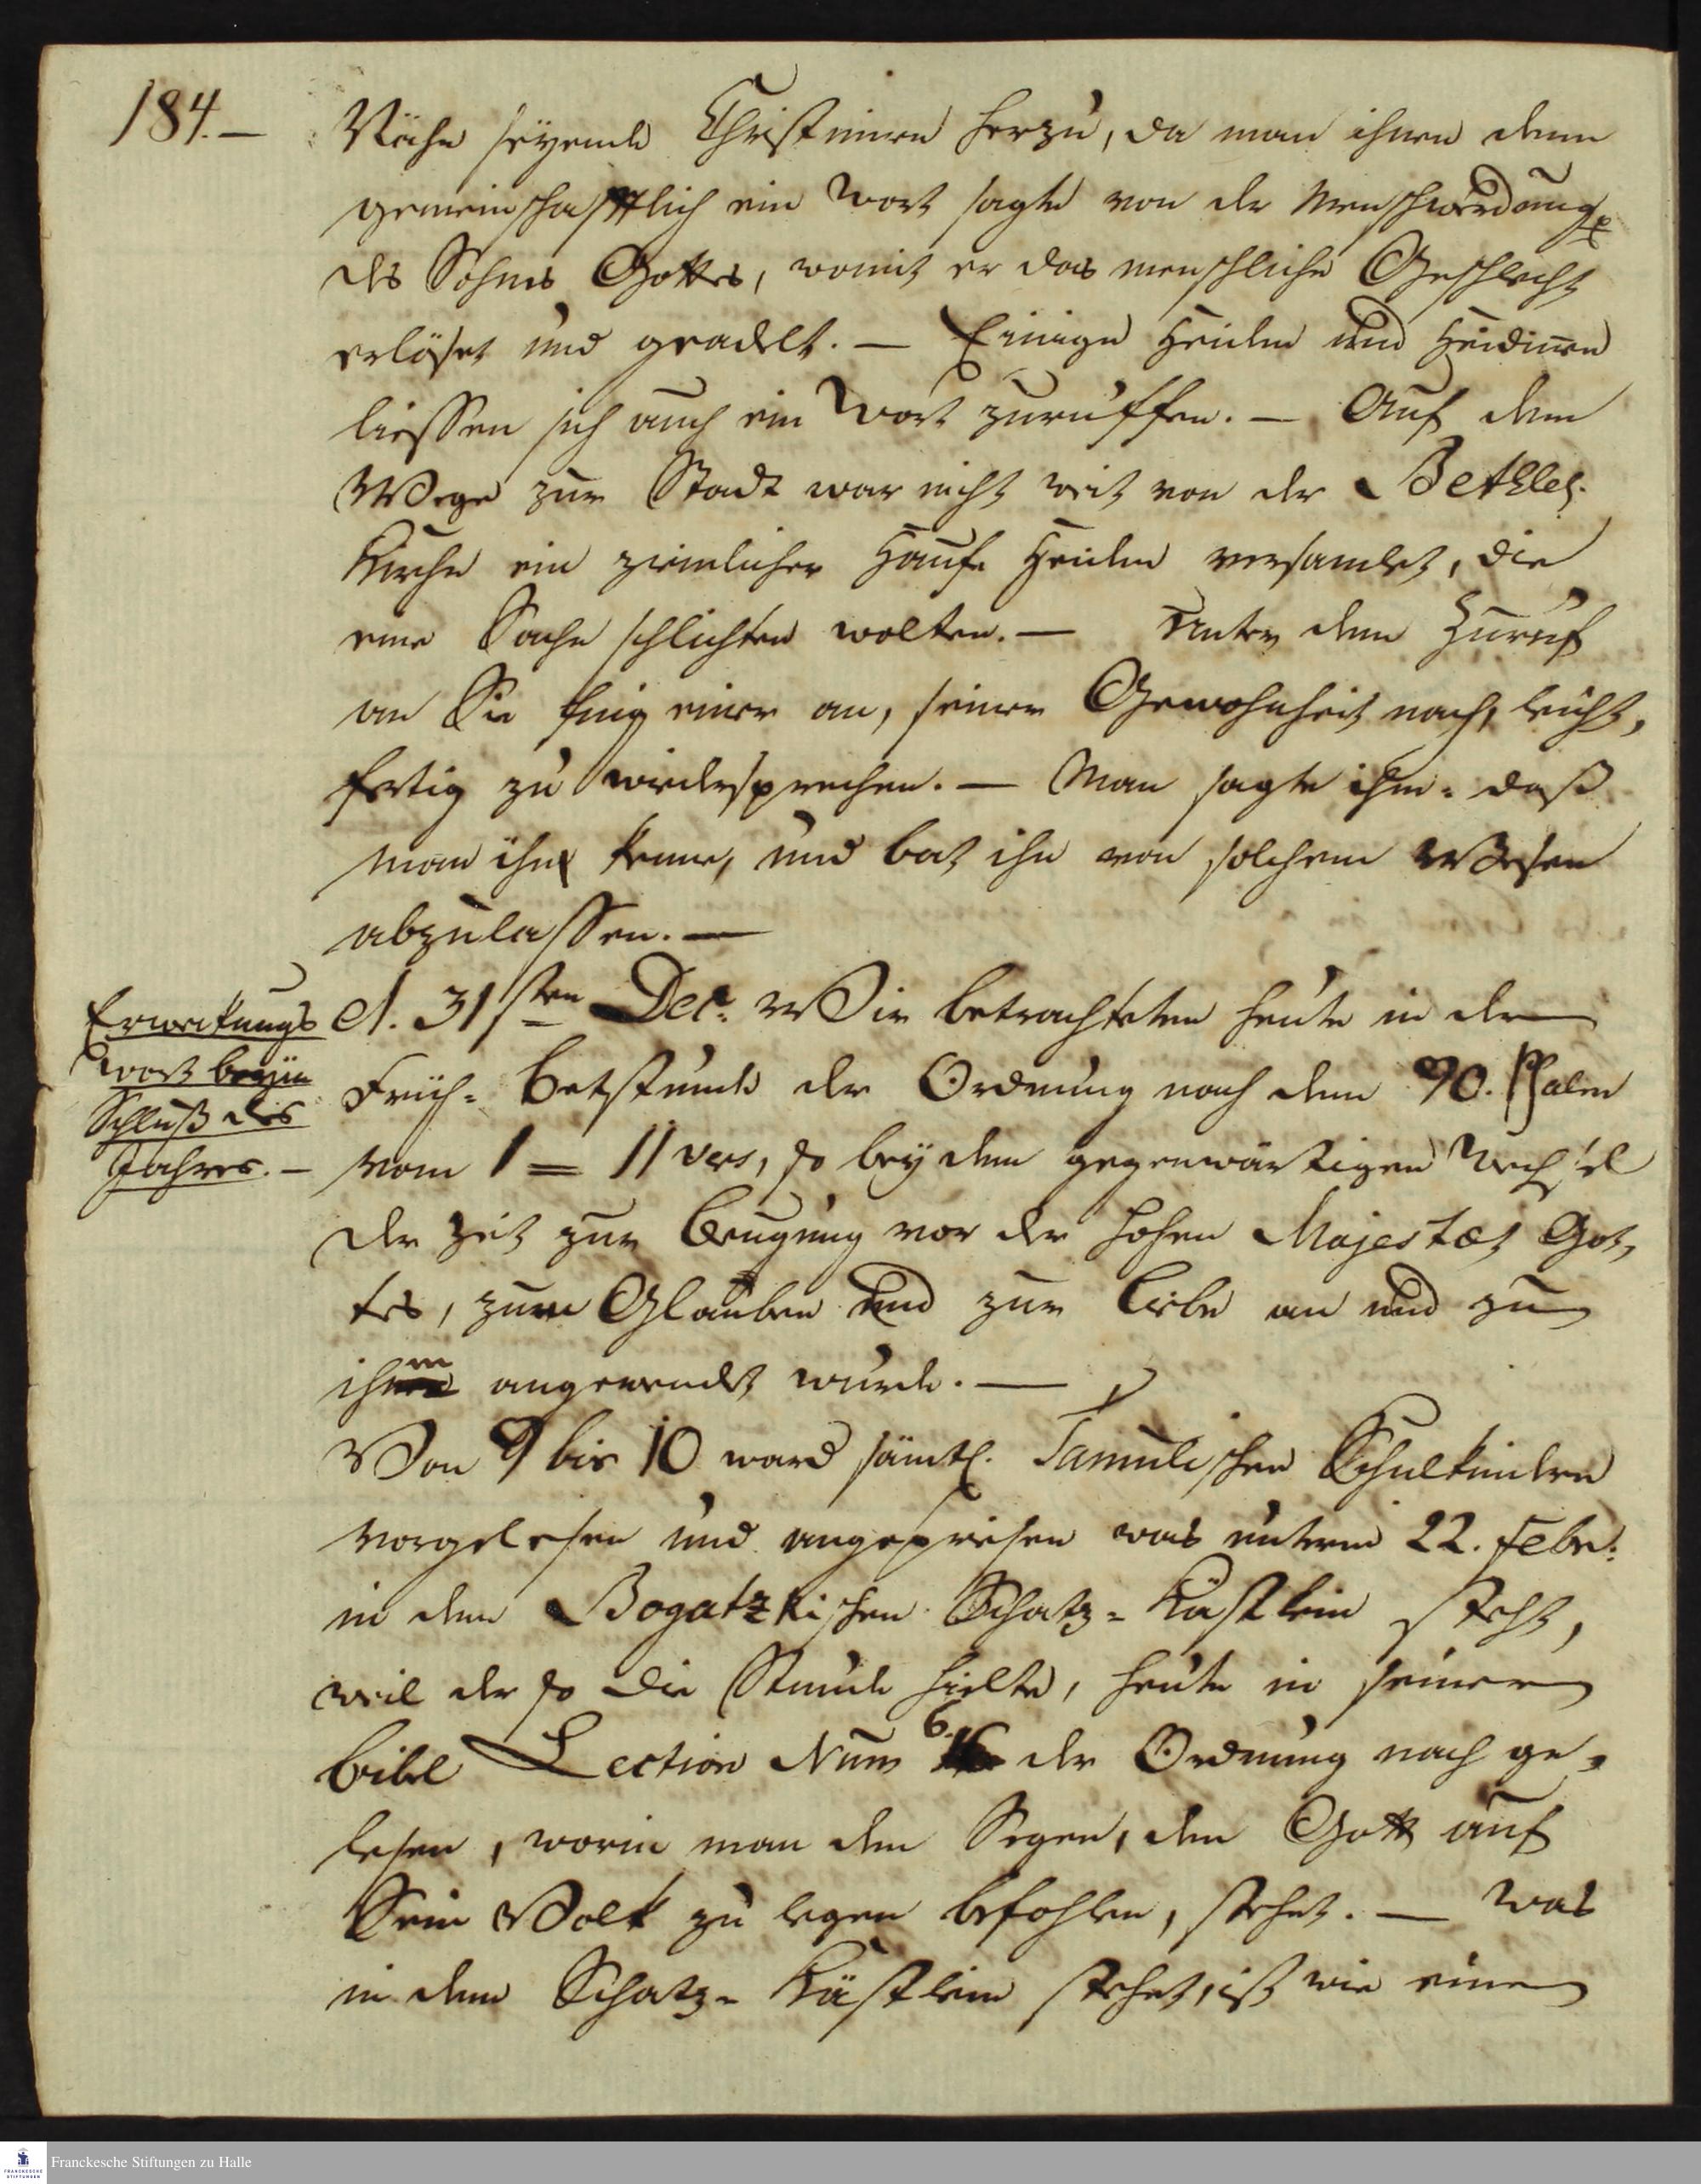 184.—
Nähe seyende Christinnen herzu, da man ihnen denn
gemeinschafftlich ein Wort sagte von der Menschwerdung
des Sohnes Gottes, womit er das menschliche Geschlecht
erlöset und geadelt. — Einige Heiden und Heidinnen
liessen sich auch ein Wort zuruffen. — Auf dem
Wege zur Stadt war nicht weit von der Bethleh.
Kirche ein ziemlicher Haufe Heiden versamlet, die
eine Sache schlichten wolten. — Unter dem Zuruf
an Sie fing einer an, seiner Gewohnheit nach, leicht,
fertig zu wiedersprechen. — Man sagte ihm: daß
man ihn kenne, und bat ihn von solchem Wesen
abzulassen. —
Erweckungs
Wort beym
Schluß des
Jahres. —
d. 31sten Dec. Wir betrachteten heute in der
Früh- Betstunde der Ordnung nach den 90. Psalm
vom 1 = 11 vers, so bey dem gegenwärtigen Wechsel
der Zeit zur Beugung vor der hohen Majestæt Got,
tes, zum Glauben und zur Liebe an und zu
ihm angewendet wurde. —
Von 9 bis 10 ward sämtl. Tamulischen Schulkindern
vorgelesen und angepriesen was unterm 22. Febr:
in dem Bogatzkischen Schatz-Kästlein steht,
weil der so die Stunde hielte, heute in seiner
bibl Lection Num 6. der Ordnung nach ge,
lesen, worin man den Segen, den Gott auf
Sein Volk zu legen befohlen, stehet. — Was
in dem Schatz-Kästlein stehet, ist wie eine
Franckesche Stiftungen zu Halle